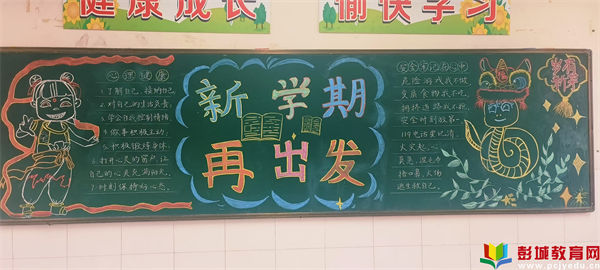 健康成长
愉快学习
心理健康
1.了解自己,接纳自己。
2.对自己的生活负责。
3.学会自我控制情绪
4.做事积极主动。
5.积极锻炼身体。
6.打开心灵的窗户,让
自己的心灵充满阳光。
7.时刻保持好心态。
新学期
再出发
安全牢记在心中
危险游戏我不做
变质食物我不吃
拥挤道路我不抢
安全时刻放第一
119电话要记清
火灾起,心
莫急,湿毛巾
捂口鼻,火场
逃生救自己。
福
彭城教育网
www.pcjyedu.cn